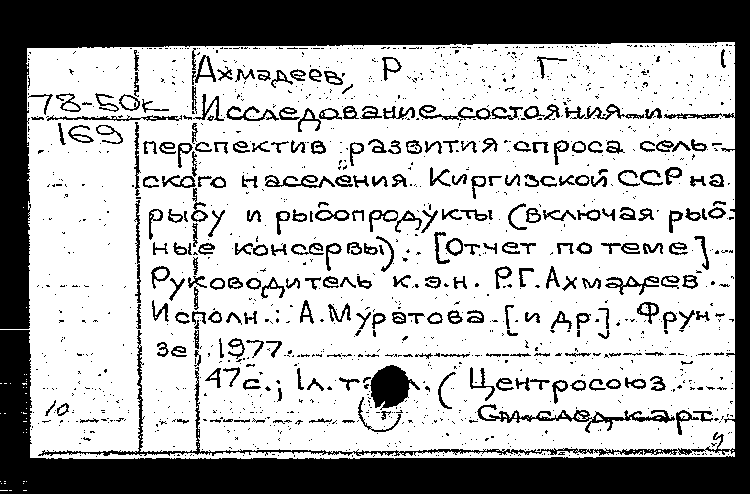 Ахмадеев, Р Г
78-50к Исследование состояния и
169 перспектив развития спроса сель-
ского населения Киргизской ССР на
рыбу и рыбопродукты (включая рыб-
ные консервы). [Отчет по теме].
Руководитель к.э.н. Р.Г.Ахмадеев.
Исполн.: А.Муратова [и др.]. Фрун-
зе, 1977.
47с.; 1л. (Центросоюз
10 См.след.карт.